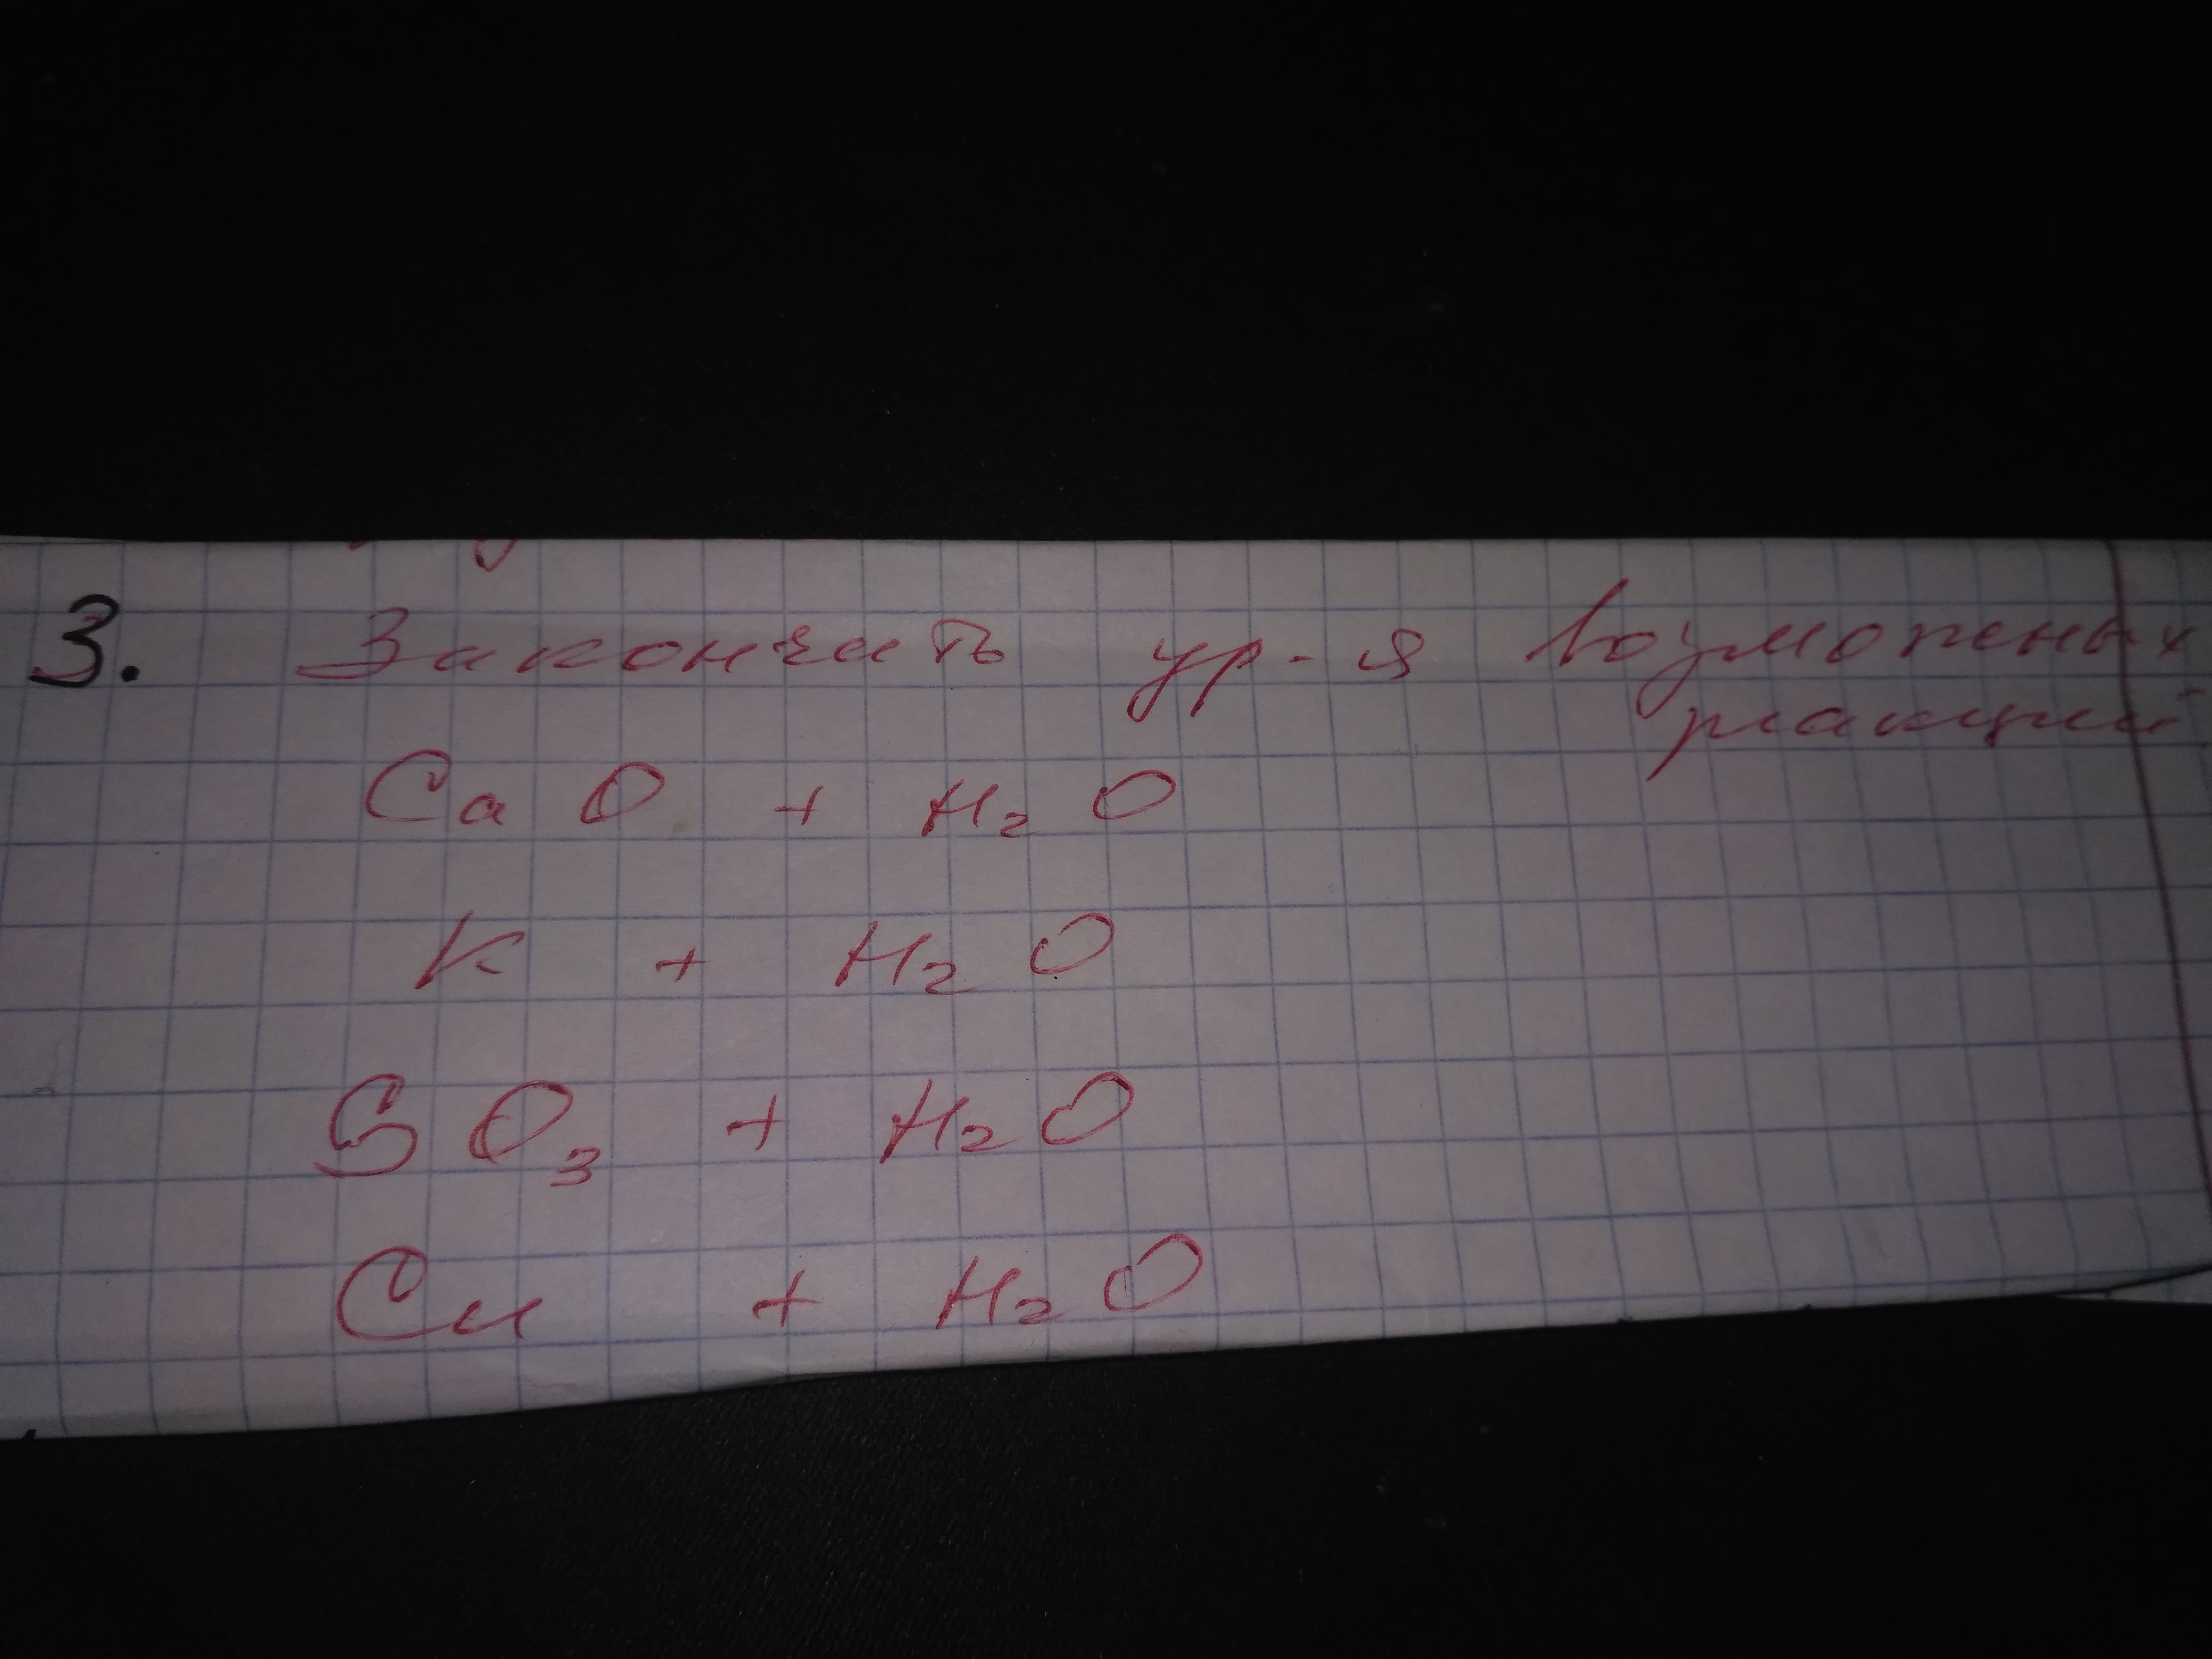 3. Закончить ур-я возможных
реакций
CaO + H₂O
K + H₂O
SO₃ + H₂O
Cu + H₂O